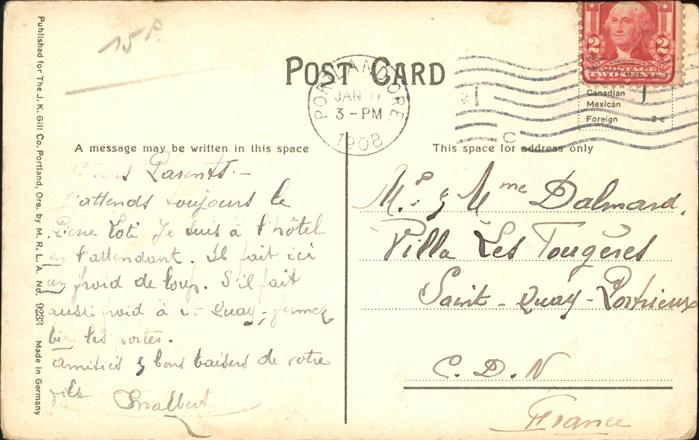 15 F.
POST CARD
PORTLAND, ORE.
JAN 17
3 - PM
1908
2 2
POSTAGE
TWO CENTS
Canadian
Mexican
Foreign 2 c
A message may be written in this space
Chers Parents.-
J'attends toujours le
Pierre Loti Je suis à l'hôtel
en l'attendant. Il fait ici
un froid de loup. S'il fait
aussi froid à St Quay, fermez
bien les portes.
Amitiés & bons baisers de votre
fils
This space for address only
Mr & Mme Dalmard.
Villa Les Fougères
Saint-Quay-Portrieux
C.D.N
France
Published for The J. K. Gill Co. Portland, Ore. by M. R. L. A. No. 9233 Made in Germany